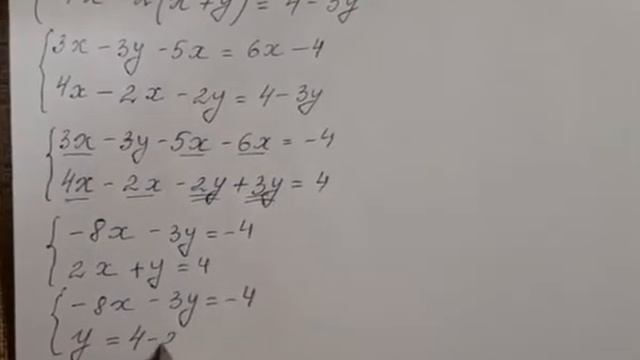 (x+y) = 4-3y
3x - 3y - 5x = 6x - 4
4x - 2x - 2y = 4 - 3y
3x - 3y - 5x - 6x = -4
4x - 2x - 2y + 3y = 4
-8x - 3y = -4
2x + y = 4
-8x - 3y = -4
y = 4 -